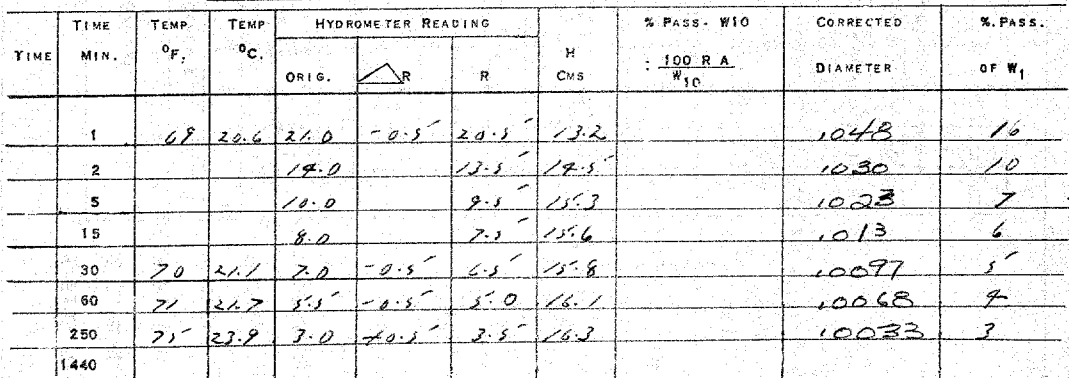 TIME TIME MIN. TEMP °F. TEMP °C. HYDROMETER READING H CMS % PASS - W10 : 100 R A / W10 CORRECTED DIAMETER %. PASS. OF W1
ORIG. △R R
1 69 20.6 21.0 -0.5 20.5 13.2 .048 16
2 14.0 13.5 14.5 .030 10
5 10.0 9.5 15.3 .023 7
15 8.0 7.5 15.6 .013 6
30 70 21.1 7.0 -0.5 6.5 15.8 .0097 5
60 71 21.7 5.5 -0.5 5.0 16.1 .0068 4
250 75 23.9 3.0 +0.5 3.5 16.3 .0033 3
1440